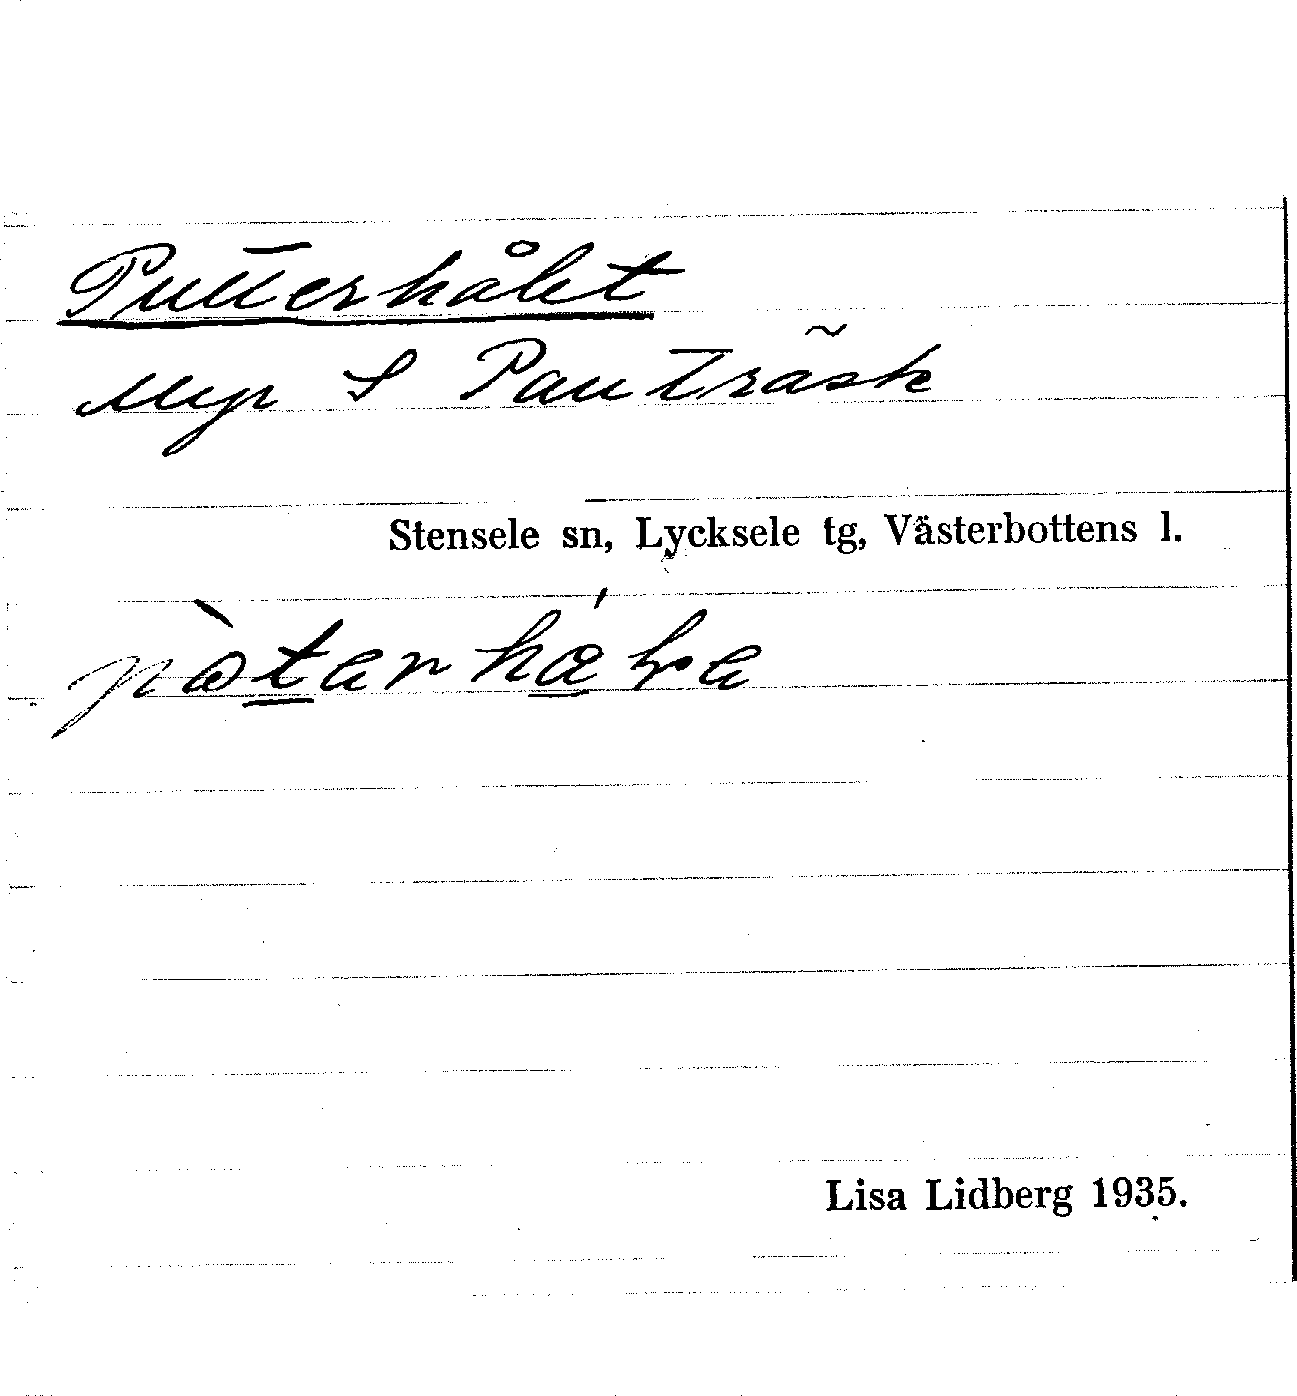 Putterhålet
Myr S Pauträsk
Stensele sn, Lycksele tg, Västerbottens l.
Lisa Lidberg 1935.